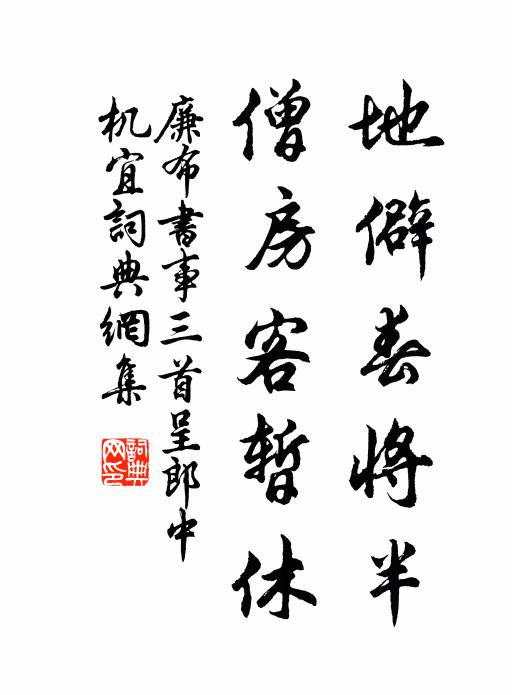 地僻春将半
僧房客暫休
廉布書事三首呈郎中
机宜詞典網集
詞典
网印